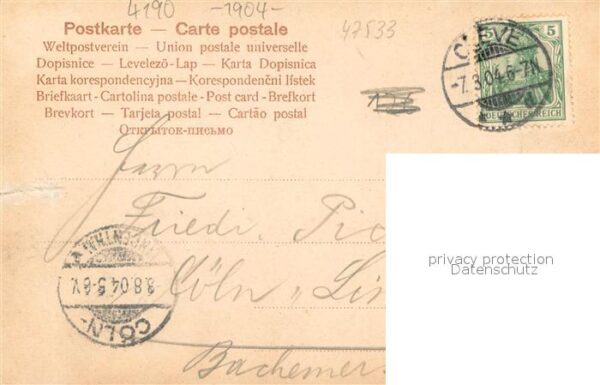 4190 -1904-
47533
Postkarte — Carte postale
Weltpostverein — Union postale universelle
Dopisnice — Levelező-Lap — Karta Dopisnica
Karta korespondencyjna — Korespondenční lístek
Briefkaart - Cartolina postale - Post card - Brefkort
Brevkort — Tarjeta postal — Cartão postal
Открытое-письмо
CLEVE
-7.8.04.6-7N.
5
DEUTSCHES REICH
Herrn
Friedr. Pic
Cöln-Lin
Bachemer-
CÖLN-
8.8.04.5-6V.
privacy protection
Datenschutz